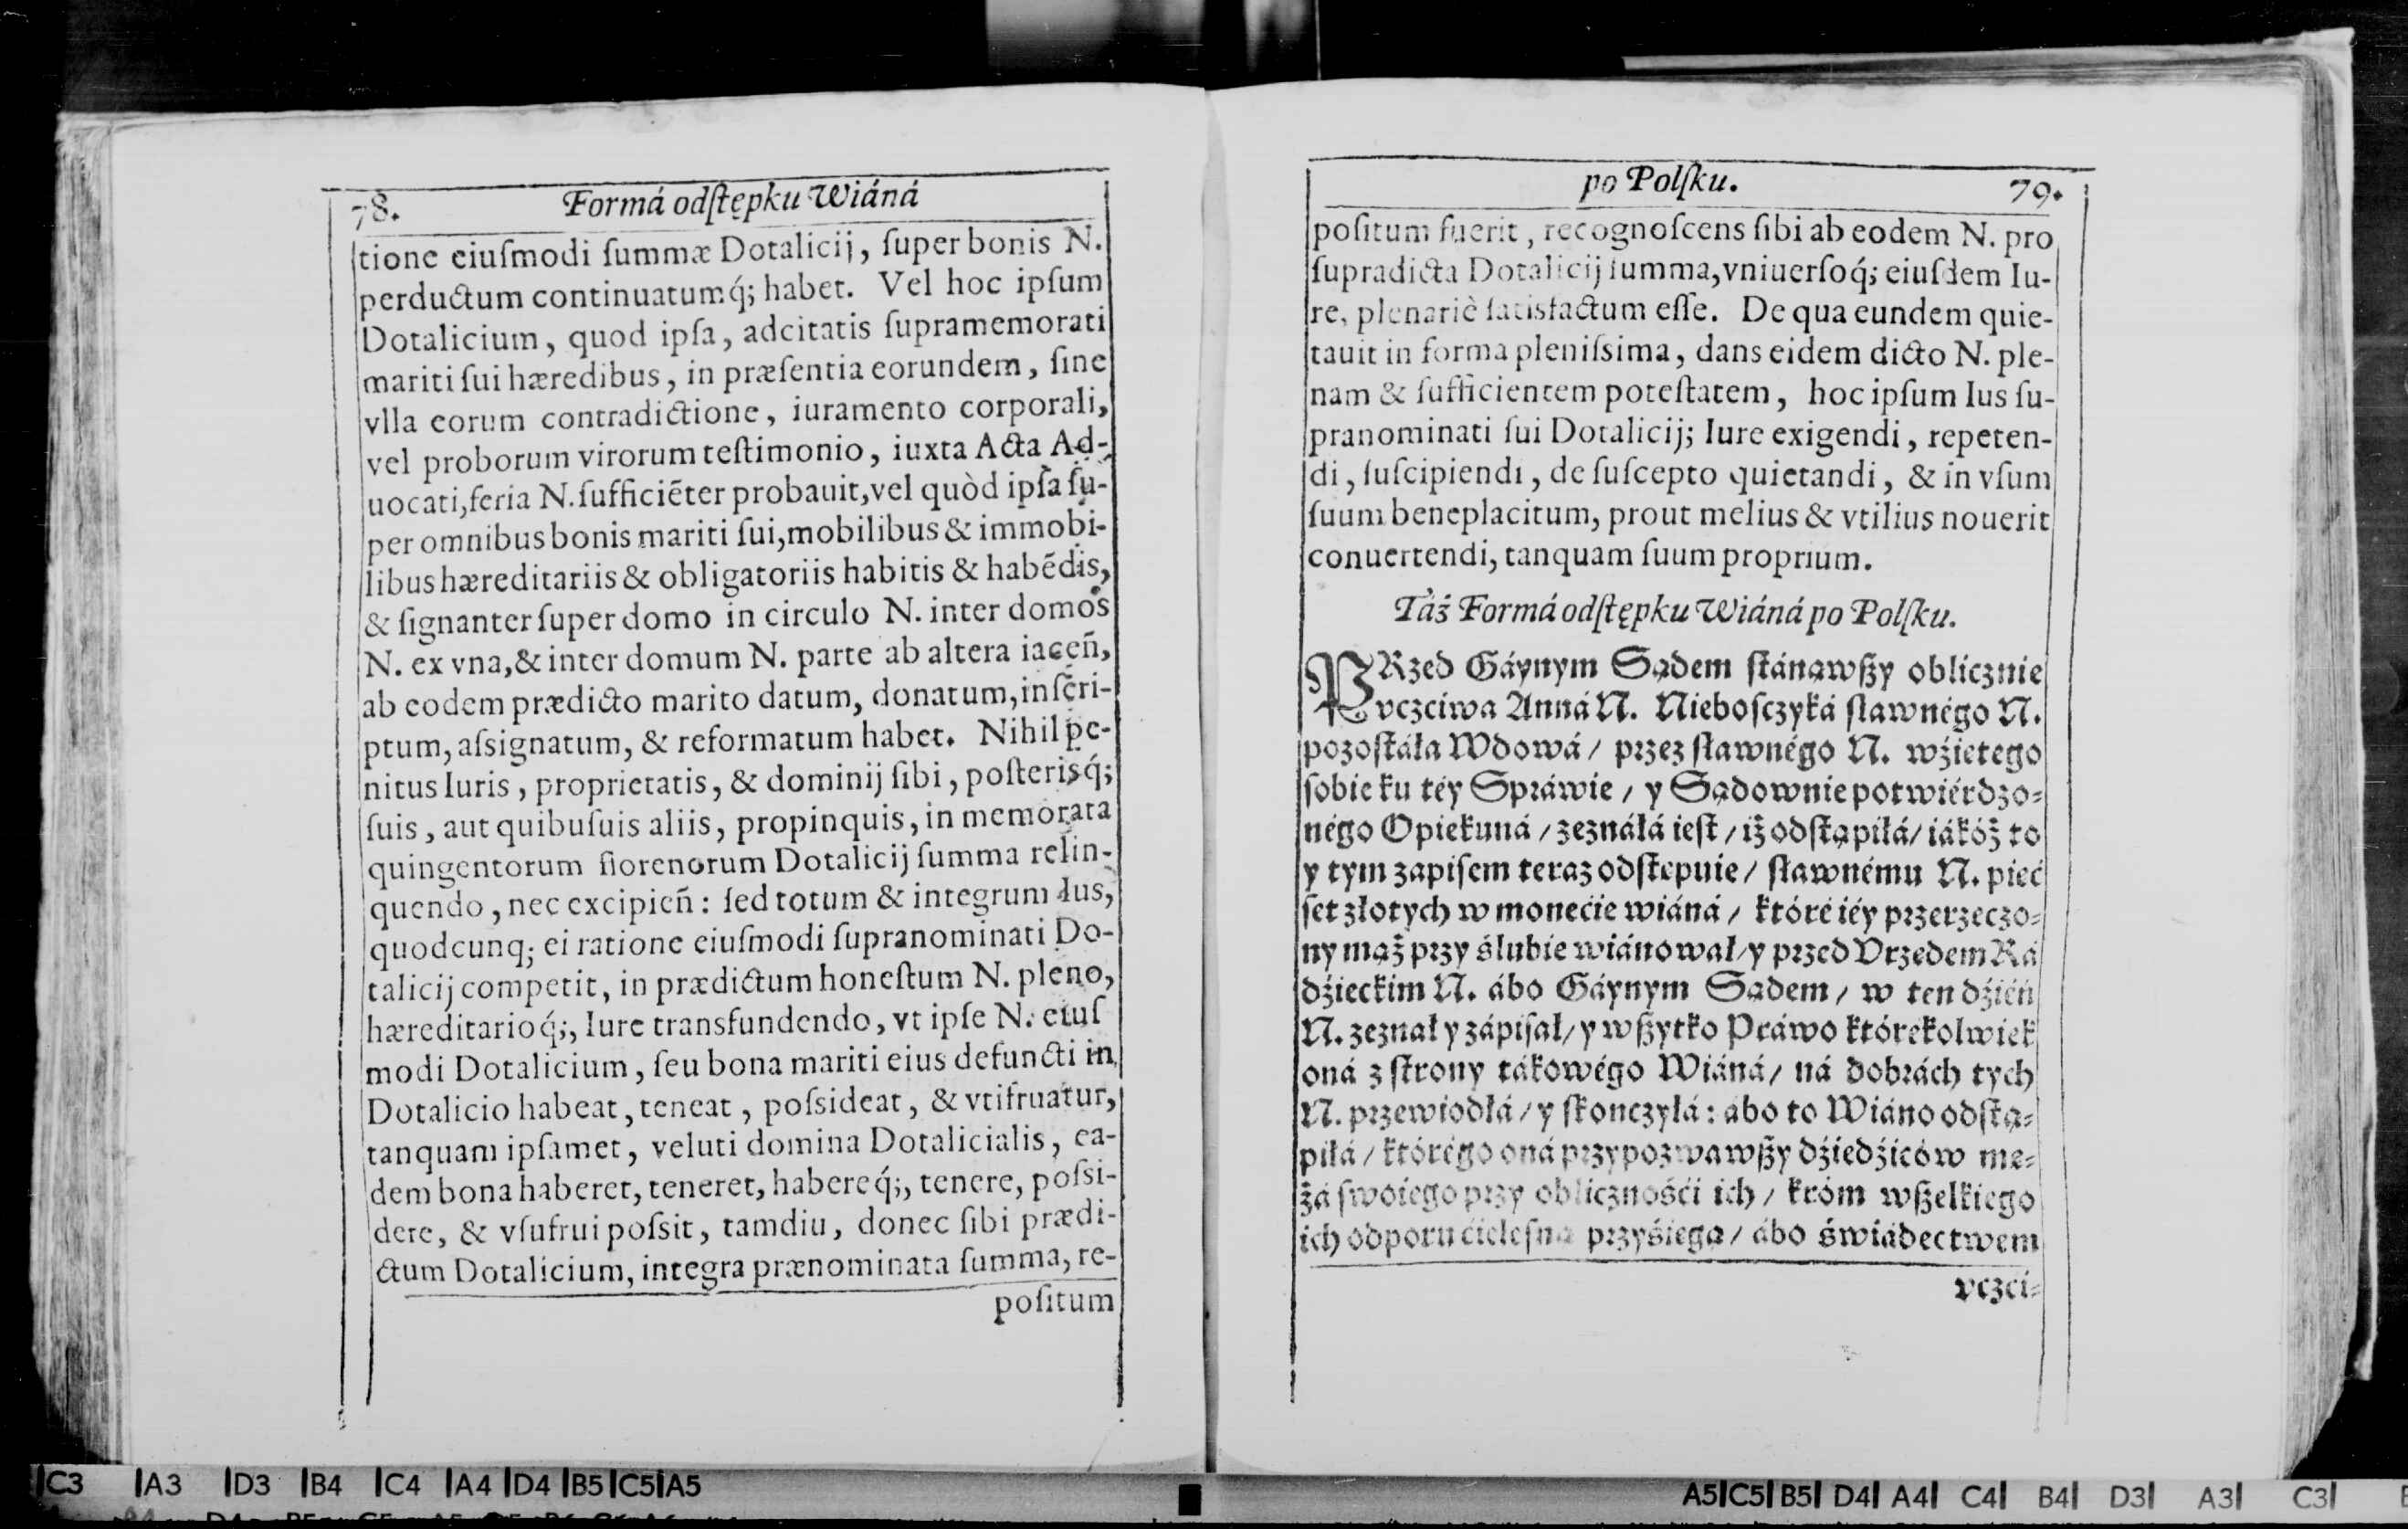 78. Formá odſtępku Wiáná
tione eiuſmodi ſummæ Dotalicij, ſuper bonis N.
perductum continuatumq́; habet. Vel hoc ipſum
Dotalicium, quod ipſa, adcitatis ſupramemorati
mariti ſui hæredibus, in præſentia eorundem, ſine
vlla eorum contradictione, iuramento corporali,
vel proborum virorum teſtimonio, iuxta Acta Ad-
uocati, feria N. ſufficiẽter probauit, vel quòd ipſa ſu-
per omnibus bonis mariti ſui, mobilibus & immobi-
libus hæreditariis & obligatoriis habitis & habẽdis,
& ſignanter ſuper domo in circulo N. inter domos
N. ex vna, & inter domum N. parte ab altera iaceñ,
ab eodem prædicto marito datum, donatum, inſcri-
ptum, aſsignatum, & reformatum habet. Nihil pe-
nitus Iuris, proprietatis, & dominij ſibi, poſterisq́;
ſuis, aut quibuſuis aliis, propinquis, in memorata
quingentorum florenorum Dotalicij ſumma relin-
quendo, nec excipieñ: ſed totum & integrum Ius,
quodcunq; ei ratione eiuſmodi ſupranominati Do-
talicij competit, in prædictum honeſtum N. pleno,
hæreditarioq́;, Iure transfundendo, vt ipſe N. eiuſ
modi Dotalicium, ſeu bona mariti eius defuncti in
Dotalicio habeat, teneat, poſsideat, & vtifruatur,
tanquam ipſamet, veluti domina Dotalicialis, ea-
dem bona haberet, teneret, habereq́;, tenere, poſsi-
dere, & vſufrui poſsit, tamdiu, donec ſibi prædi-
ctum Dotalicium, integra prænominata ſumma, re-
poſitum
po Polſku. 79.
poſitum fuerit, recognoſcens ſibi ab eodem N. pro
ſupradicta Dotalicij ſumma, vniuerſoq́; eiuſdem Iu-
re, plenariè ſatisfactum eſſe. De qua eundem quie-
tauit in forma pleniſsima, dans eidem dicto N. ple-
nam & ſufficientem poteſtatem, hoc ipſum Ius ſu-
pranominati ſui Dotalicij; Iure exigendi, repeten-
di, ſuſcipiendi, de ſuſcepto quietandi, & in vſum
ſuum beneplacitum, prout melius & vtilius nouerit
conuertendi, tanquam ſuum proprium.
Táż Formá odſtępku Wiáná po Polſku.
PRzed Gáynym Sądem ſtánąwßy oblicznie
vczciwa Anná N. Niebosczyká ſławnégo N.
pozoſtáła Wdowá / przez ſławnégo N. wźietego
ſobie ku téy Spráwie / y Sądownie potwiérdzo-
négo Opiekuná / zeznáłá ieſt / iż odſtąpiłá / iákóż to
y tym zapiſem teraz odſtępuie / ſławnému N. pieć
ſet złotych w monećie wiáná / któré iéy przerzeczo-
ny mąż przy ślubie wiánował / y przed Vrzędem Rá
dźieckim N. ábo Gáynym Sądem / w ten dźień
N. zeznał y zápiſał / y wßytko Práwo którekolwiek
oná z ſtrony tákowégo Wiáná / ná dobrách tych
N. przewiodłá / y ſkonczyłá: ábo to Wiáno odſtą-
piłá / którégo oná przypozwawßy dźiedźiców mę-
żá ſwoiego przy oblicznośći ich / króm wßelkiego
ich odporu ćieleſną przyśięgą / ábo świádectwem
vczci-